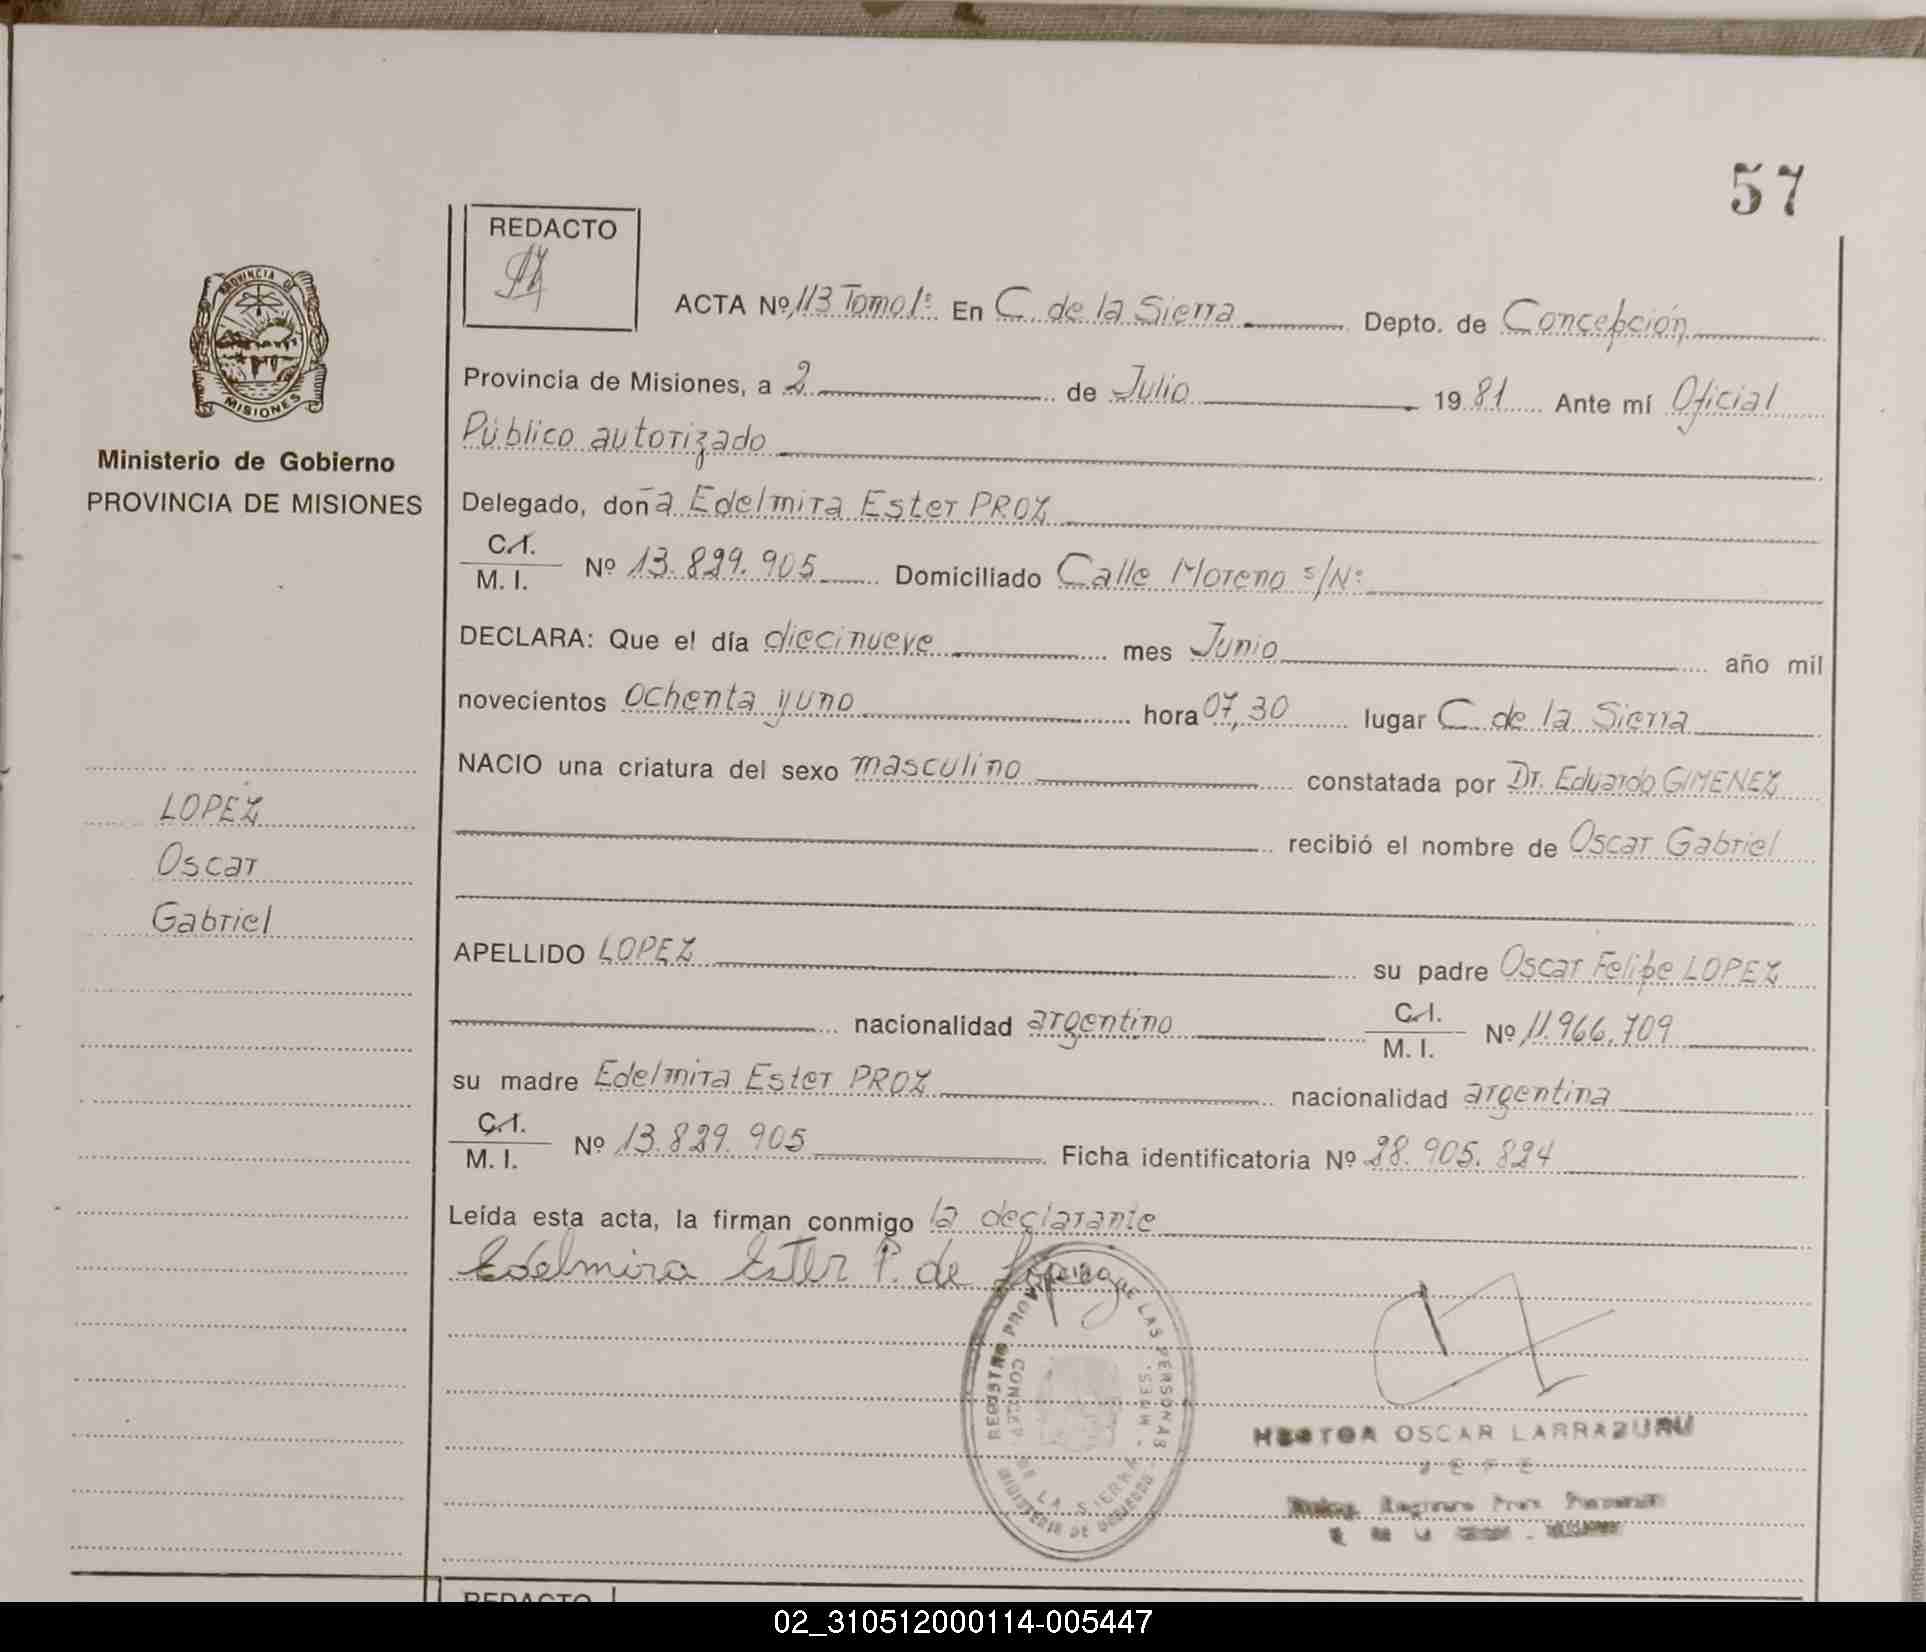 57
REDACTO
PROVINCIA DE
MISIONES
Ministerio de Gobierno
PROVINCIA DE MISIONES
LOPEZ
Oscar
Gabriel
ACTA Nº 113 Tomo 1º En C. de la Sierra Depto. de Concepción
Provincia de Misiones, a 2 de Julio 1981 Ante mí Oficial
Público autorizado
Delegado, doña Edelmira Ester PROZ
C.I.
M. I. Nº 13.829.905 Domiciliado Calle Moreno s/Nº
DECLARA: Que el día diecinueve mes Junio año mil
novecientos ochenta y uno hora 07,30 lugar C. de la Sierra
NACIO una criatura del sexo masculino constatada por Dr. Eduardo GIMENEZ
recibió el nombre de Oscar Gabriel
APELLIDO LOPEZ su padre Oscar Felipe LOPEZ
nacionalidad argentino C.I.
M. I. Nº 11.966.709
su madre Edelmira Ester PROZ nacionalidad argentina
C.I.
M. I. Nº 13.829.905 Ficha identificatoria Nº 28.905.824
Leída esta acta, la firman conmigo la declarante
Edelmira Ester P. de Lopez
REGISTRO PROVINCIAL DE LAS PERSONAS
MINISTERIO DE GOBIERNO
DE LA SIERRA
HECTOR OSCAR LARRAZURU
JEFE
REDACTO
02_310512000114-005447